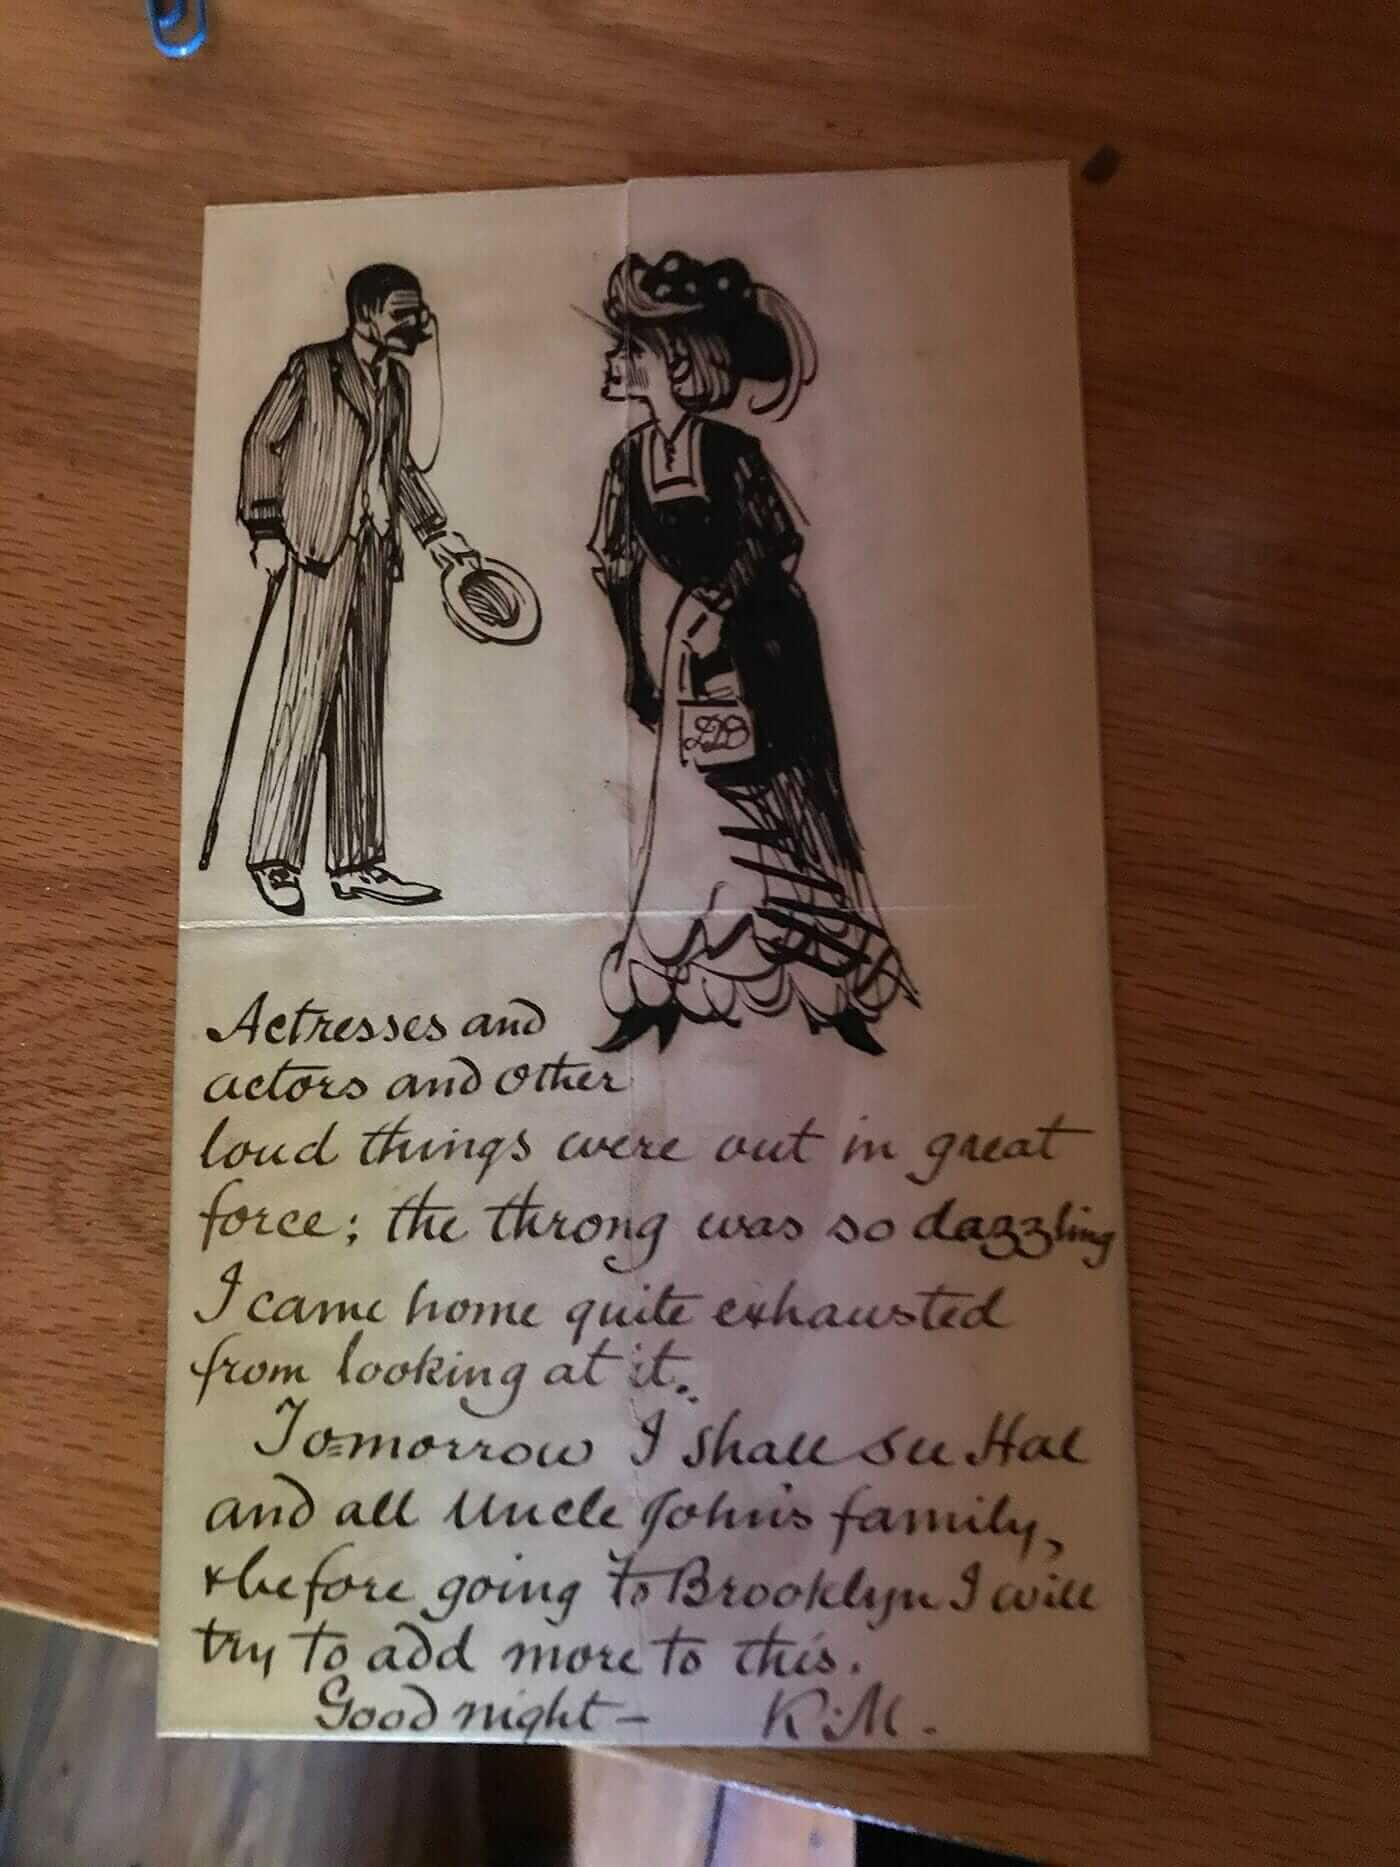 Actresses and
actors and other
loud things were out in great
force; the throng was so dazzling
I came home quite exhausted
from looking at it.
To=morrow I shall see Hal
and all Uncle John's family,
& before going to Brooklyn I will
try to add more to this.
Good night — K.M.